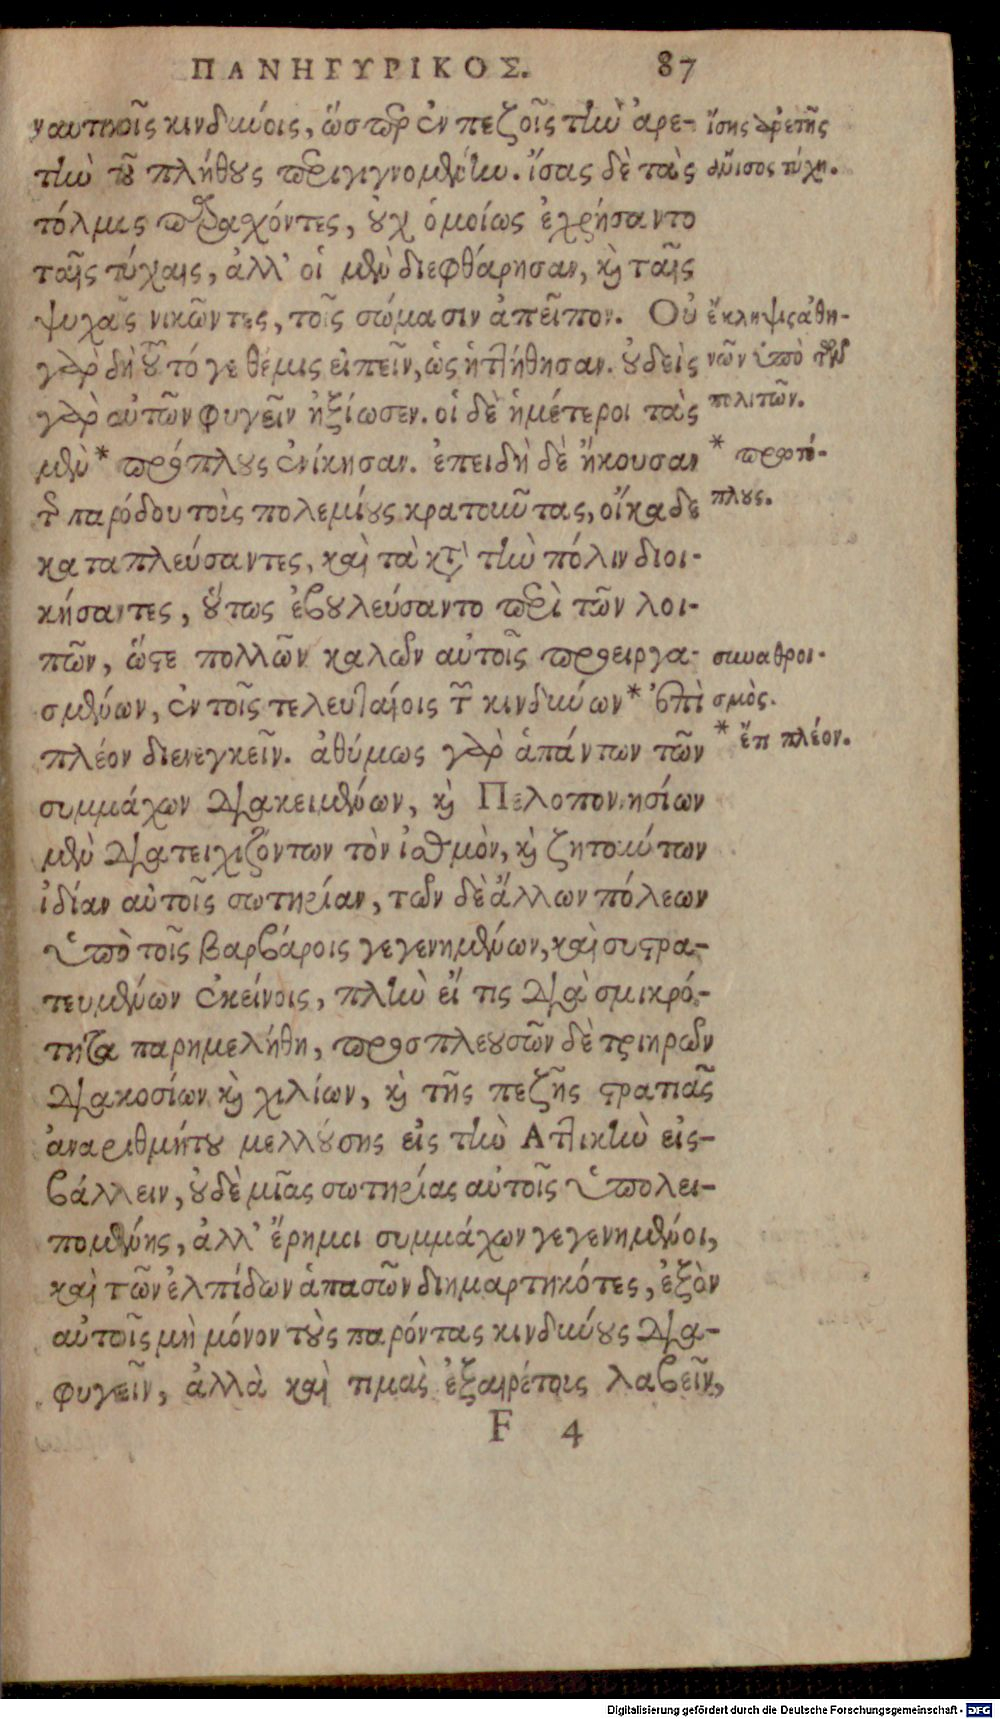 ΠΑΝΗΓΥΡΙΚΟΣ. 87
ναυτικοῖς κινδύνοις, ὥσπερ ἐν πεζοῖς τὴν ἀρε-
τὴν τοῦ πλήθους περιγιγνομένην. ἴσας δὲ τὰς
τόλμας παρασχόντες, οὐχ ὁμοίως ἐχρήσαντο
ταῖς τύχαις, ἀλλ' οἱ μὲν διεφθάρησαν, καὶ ταῖς
ψυχαῖς νικῶντες, τοῖς σώμασιν ἀπεῖπον. Οὐ
γὰρ δὴ τοῦτό γε θέμις εἰπεῖν, ὡς ἡττήθησαν. οὐδεὶς
γὰρ αὐτῶν φυγεῖν ἠξίωσεν. οἱ δὲ ἡμέτεροι τὰς
μὲν * πρόπλους ἐνίκησαν. ἐπειδὴ δὲ ἤκουσαν
τῆς παρόδου τοὺς πολεμίους κρατοῦντας, οἴκαδε
καταπλεύσαντες, καὶ τὰ κατὰ τὴν πόλιν διοι-
κήσαντες, οὕτως ἐβουλεύσαντο περὶ τῶν λοι-
πῶν, ὥστε πολλῶν καλῶν αὐτοῖς προειργα-
σμένων, ἐν τοῖς τελευταίοις τῶν κινδύνων * ἐπὶ
πλέον διενεγκεῖν. ἀθύμως γὰρ ἁπάντων τῶν
συμμάχων διακειμένων, καὶ Πελοποννησίων
μὲν διατειχιζόντων τὸν ἰσθμὸν, καὶ ζητούντων
ἰδίαν αὑτοῖς σωτηρίαν, τῶν δὲ ἄλλων πόλεων
ὑπὸ τοῖς βαρβάροις γεγενημένων, καὶ συστρα-
τευμένων ἐκείνοις, πλὴν εἴ τις διὰ σμικρό-
τητα παρημελήθη, προσπλεουσῶν δὲ τριηρῶν
διακοσίων καὶ χιλίων, καὶ τῆς πεζῆς στρατιᾶς
ἀναριθμήτου μελλούσης εἰς τὴν Ἀττικὴν εἰς-
βάλλειν, οὐδὲ μῖας σωτηρίας αὐτοῖς ὑπολει-
πομένης, ἀλλ' ἔρημοι συμμάχων γεγενημένοι,
καὶ τῶν ἐλπίδων ἁπασῶν διημαρτηκότες, ἐξὸν
αὐτοῖς μὴ μόνον τοὺς παρόντας κινδύνους δια-
φυγεῖν, ἀλλὰ καὶ τιμὰς ἐξαιρέτους λαβεῖν,
F 4
ἴσης ἀρετῆς
ἄνισος τύχη.
ἔκληψις ἀθη-
νῶν ὑπὸ τῶν
πολιτῶν.
* πρωτό-
πλους.
συναθροι-
σμὸς.
* ἔπι πλέον.
Digitalisierung gefördert durch die Deutsche Forschungsgemeinschaft - DFG